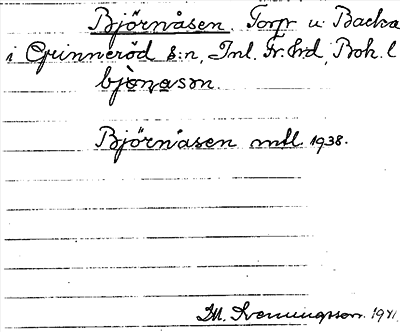 Björnåsen. Torp u Backa
i Grinneröd s:n, Inl. Fr. hd, Boh. l
bjònasn.
Björnåsen mtl. 1938.
M. Svenningsson. 1941.